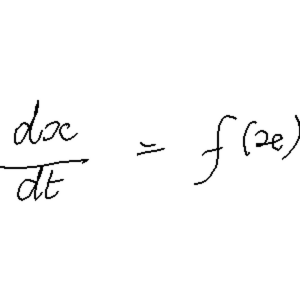 dx/dt = f(x)